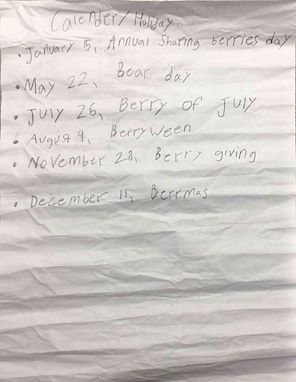 Calender/Holiday
• January 5, Annual Sharing berries day
• May 22, Bear day
• July 26, Berry of July
• August 9, Berryween
• November 28, Berry giving
• December 11, Berrmas